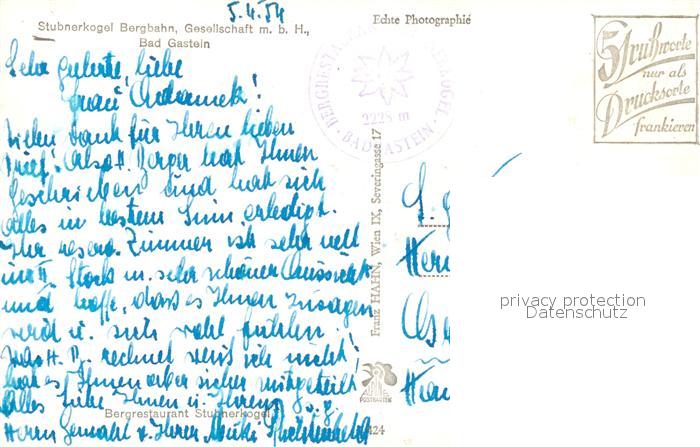 5.4.54
Stubnerkogel Bergbahn, Gesellschaft m. b. H.,
Bad Gastein
Sehr geehrte, liebe
Frau Adamek!
Vielen Dank für Ihren lieben
Brief. Also H. Berger hat Ihnen
geschrieben und hat sich
alles in bestem Sinn erledigt.
Ihr reserv. Zimmer ist sehr nett
im II. Stock m. sehr schöner Aussicht
und hoffe, dass es Ihnen zusagen
wird u. sich wohl fühlen.
Was H. B. rechnet weiß ich nicht!
hat es Ihnen aber sicher mitgeteilt
Alles Liebe Ihnen u. Ihrem
Herrn Gemahl v. Ihrer
Bergrestaurant Stubnerkogel
Echte Photographie
BERGRESTAURANT STUBNERKOGEL
2228 m
· BAD GASTEIN ·
Franz HAHN, Wien IX, Severingasse 17
POSTKARTEN
424
5 Grußworte
nur als
Drucksorte
frankieren
privacy protection
Datenschutz